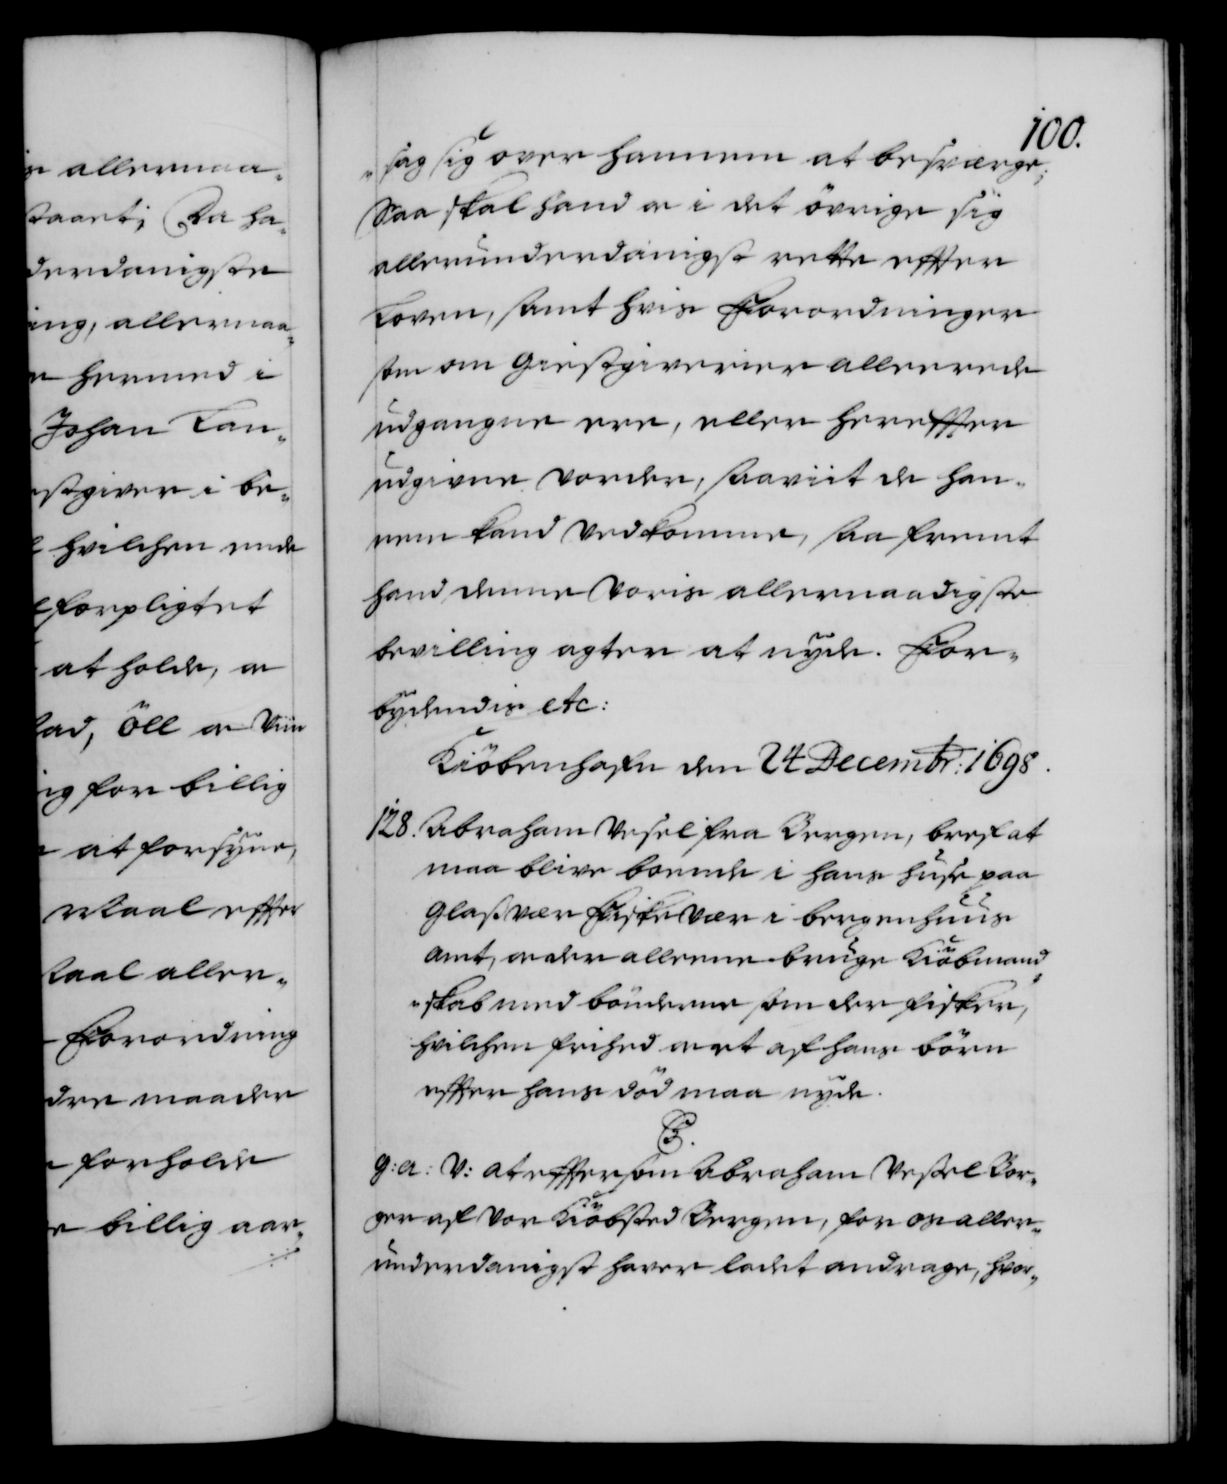 e allernaa-
staart; Da ha-
derdanigste
ing, allernaa-
hermed i
Johan Lan-
stgiver i be-
hvilchen ende
forpligtet
at holde, oc
ad, Öll oc Viin
ig for billig
at forsyne,
Maal effter
taal aller-
Forordning
dre maader
forholde
billig aar-
100.
-sag sig over hannem at besværge;
Saa skal hand oc i det övrige sig
allerunderdanigst rette effter
Loven, samt hvis Forordninger
som om Giestgiverier allerede
udgangne ere, eller hereffter
udgivne vorder, saaviit de han-
nem kand vedkomme, saa fremt
hand denne Voris allernaadigste
bevilling agter at nyde. For-
bydendis etc:
Kiöbenhafn den 24 Decembr: 1698.
128. Abraham Vesel fra Bergen, bref at
maa blive boende i hans huse paa
Glasvær Fiskevær i bergenhuus
amt, oc der alleene bruge Kiöbmand-
-skab med bönderne som der fisker,
hvilchen frihed oc et af hans börn
effter hans död maa nyde.
C5.
G: A: V: at effter som Abraham Vessel Bor-
ger af vor Kiöbsted Bergen, for os aller-
underdanigst haver ladet andrage, hvor-